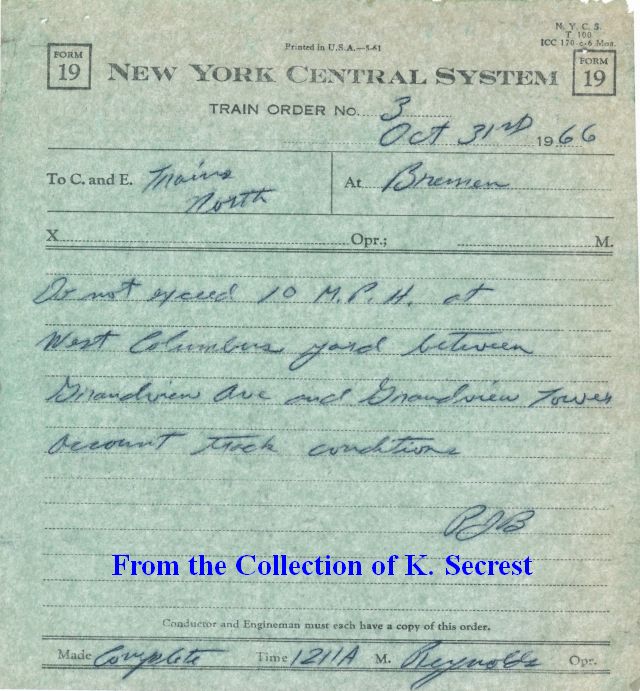 N. Y. C. S.
T 100
ICC 170-c-6 Mos.
Printed in U.S.A.—5-61
FORM
19
NEW YORK CENTRAL SYSTEM
FORM
19
TRAIN ORDER No. 3
Oct 31rd 1966
To C. and E. Trains
North
At Bremen
X Opr.; M.
Do not exceed 10 M.P.H. at
West Columbus yard between
Grandview Ave and Grandview Tower
account track conditions
PJB
From the Collection of K. Secrest
Conductor and Engineman must each have a copy of this order.
Made Complete Time 1211A M. Reynolds Opr.